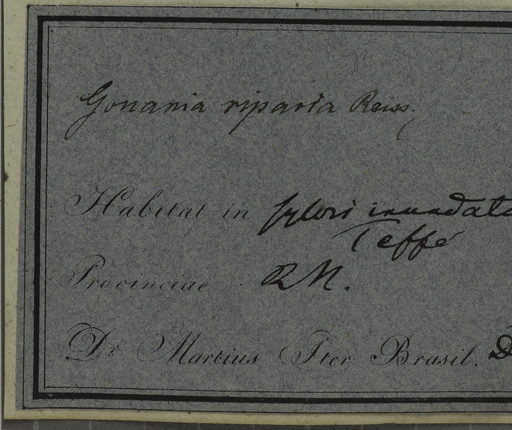 Gouania riparia Reiss.
Habitat in sylvis inundatis
Teffé
Provinciae R N.
Dr. Martius Iter Brasil. D